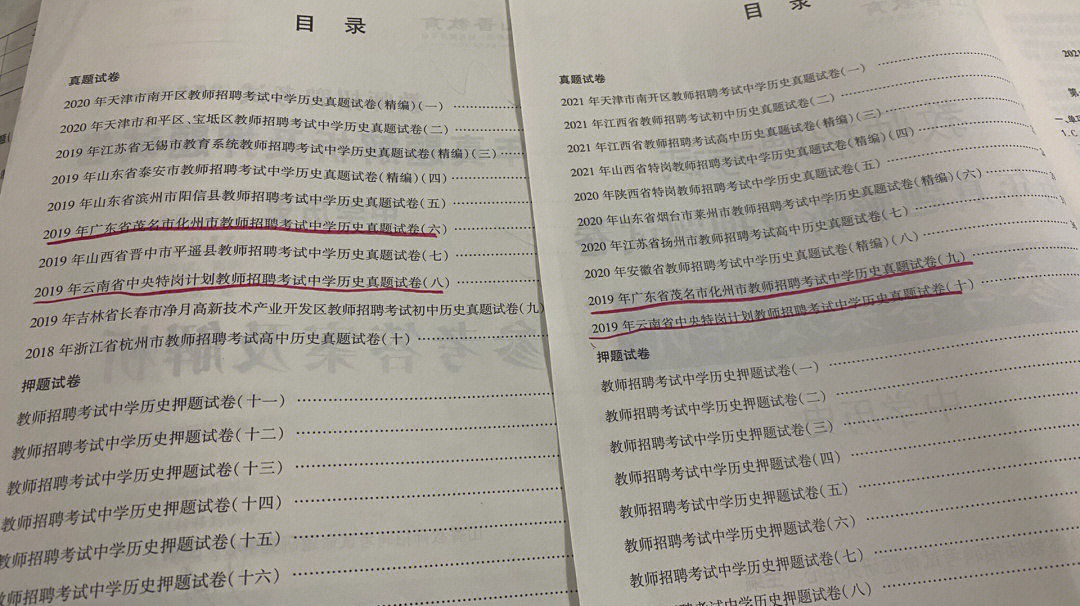 目 录
真题试卷
2020 年天津市南开区教师招聘考试中学历史真题试卷(精编)(一)
2020 年天津市和平区、宝坻区教师招聘考试中学历史真题试卷(二)
2019 年江苏省无锡市教育系统教师招聘考试中学历史真题试卷(精编)(三)
2019 年山东省泰安市教师招聘考试中学历史真题试卷(精编)(四)
2019 年山东省滨州市阳信县教师招聘考试中学历史真题试卷(五)
2019 年广东省茂名市化州市教师招聘考试中学历史真题试卷(六)
2019 年山西省晋中市平遥县教师招聘考试中学历史真题试卷(七)
2019 年云南省中央特岗计划教师招聘考试中学历史真题试卷(八)
2019 年吉林省长春市净月高新技术产业开发区教师招聘考试初中历史真题试卷(九)
2018 年浙江省杭州市教师招聘考试高中历史真题试卷(十)
押题试卷
教师招聘考试中学历史押题试卷(十一)
教师招聘考试中学历史押题试卷(十二)
教师招聘考试中学历史押题试卷(十三)
教师招聘考试中学历史押题试卷(十四)
教师招聘考试中学历史押题试卷(十五)
教师招聘考试中学历史押题试卷(十六)
目 录
真题试卷
2021 年天津市南开区教师招聘考试中学历史真题试卷(一)
2021 年江西省教师招聘考试初中历史真题试卷(二)
2021 年江西省教师招聘考试高中历史真题试卷(精编)(三)
2021 年山西省特岗教师招聘考试中学历史真题试卷(精编)(四)
2020 年陕西省特岗教师招聘考试中学历史真题试卷(五)
2020 年山东省烟台市莱州市教师招聘考试中学历史真题试卷(精编)(六)
2020 年江苏省扬州市教师招聘考试高中历史真题试卷(七)
2020 年安徽省教师招聘考试中学历史真题试卷(精编)(八)
2019 年广东省茂名市化州市教师招聘考试中学历史真题试卷(九)
2019 年云南省中央特岗计划教师招聘考试中学历史真题试卷(十)
押题试卷
教师招聘考试中学历史押题试卷(一)
教师招聘考试中学历史押题试卷(二)
教师招聘考试中学历史押题试卷(三)
教师招聘考试中学历史押题试卷(四)
教师招聘考试中学历史押题试卷(五)
教师招聘考试中学历史押题试卷(六)
教师招聘考试中学历史押题试卷(七)
教师招聘考试中学历史押题试卷(八)
2021
第
一、单
1.C